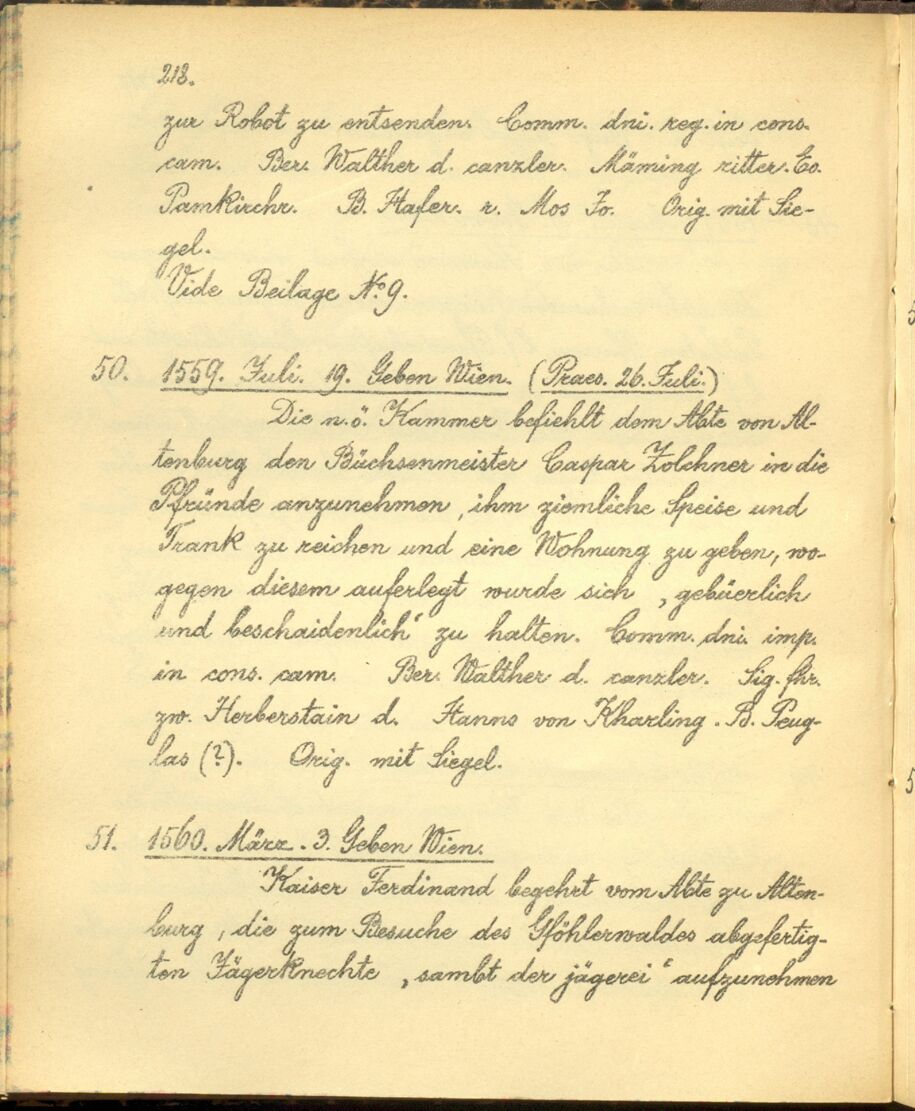 218.
zur Robot zu entsenden. Comm. dni. reg. in cons.
cam. Ber. Walther d. canzler. Mäming ritter. Eo.
Pamkirchr. B. Hafer. r. Mos Jo. Orig. mit Sie-
gel.
Vide Beilage No. 9.
50. 1559. Juli. 19. Geben Wien. (Praes. 26. Juli.)
Die n.ö. Kammer befiehlt dem Abte von Al-
tenburg den Büchsenmeister Caspar Zolchner in die
Pfründe anzunehmen, ihm ziemliche Speise und
Trank zu reichen und eine Wohnung zu geben, wo-
gegen diesem auferlegt wurde sich „gebüerlich
und beschaidenlich“ zu halten. Comm. dni. imp.
in cons. cam. Ber. Walther d. canzler. Sig. fhr.
zw. Herberstain d. Hanns von Kharling. B. Peug-
las (?). Orig. mit Siegel.
51. 1560. März. 3. Geben Wien.
Kaiser Ferdinand begehrt vom Abte zu Alten-
burg, die zum Besuche des Gföhlerwaldes abgefertig-
ten Jägerknechte „sambt der jägerei“ aufzunehmen
5
5